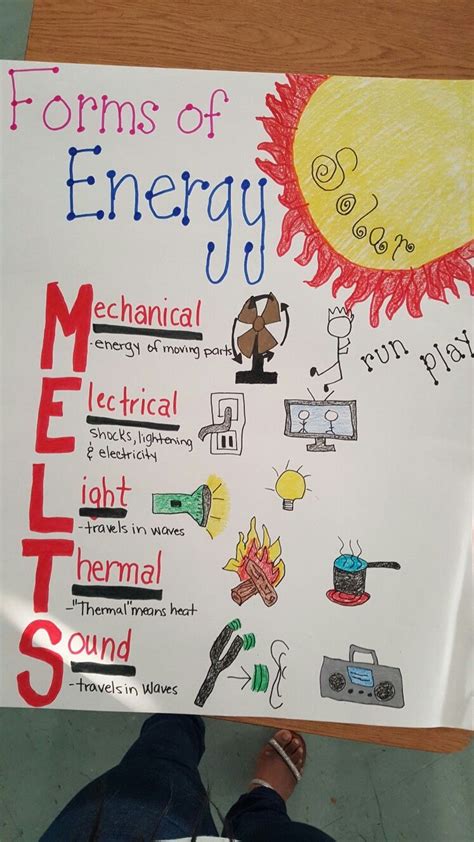 Forms of
Energy
Solar
Mechanical
-energy of moving parts
run play
Electrical
shocks, lightening
& electricity
Light
-travels in waves
Thermal
-"Thermal" means heat
Sound
-travels in waves